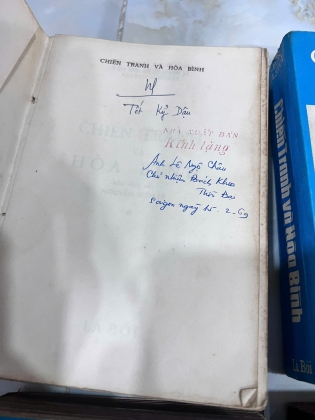 CHIẾN TRANH VÀ HÒA BÌNH
Tết Kỷ Dậu
NHÀ XUẤT BẢN
Kính tặng
Anh Lê Ngộ Châu
Chủ nhiệm Bách Khoa
Thời Đại
Saigon ngày 15-2-69
Chiến Tranh và Hòa Bình
Lá Bối